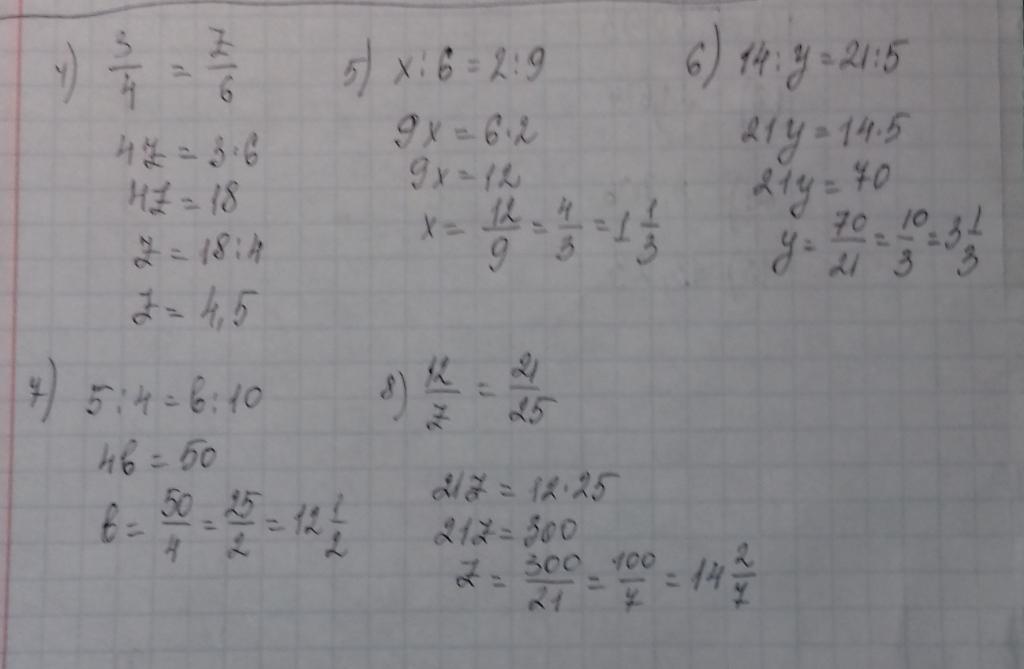 4) 3/4 = z/6
4z = 3·6
4z = 18
z = 18:4
z = 4,5
5) x:6 = 2:9
9x = 6·2
9x = 12
x = 12/9 = 4/3 = 1 1/3
6) 14:y = 21:5
21y = 14·5
21y = 70
y = 70/21 = 10/3 = 3 1/3
7) 5:4 = b:10
4b = 50
b = 50/4 = 25/2 = 12 1/2
8) 12/z = 21/25
21z = 12·25
21z = 300
z = 300/21 = 100/7 = 14 2/7